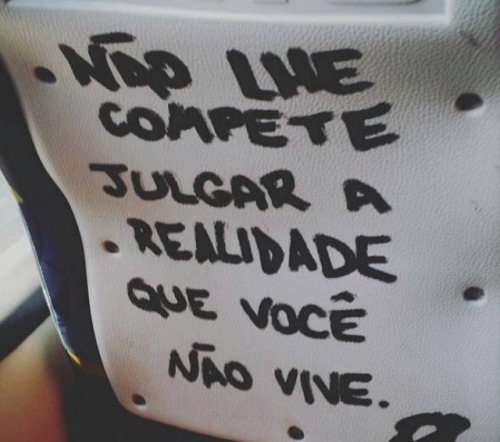 NÃO LHE
COMPETE
JULGAR A
REALIDADE
QUE VOCÊ
NÃO VIVE.